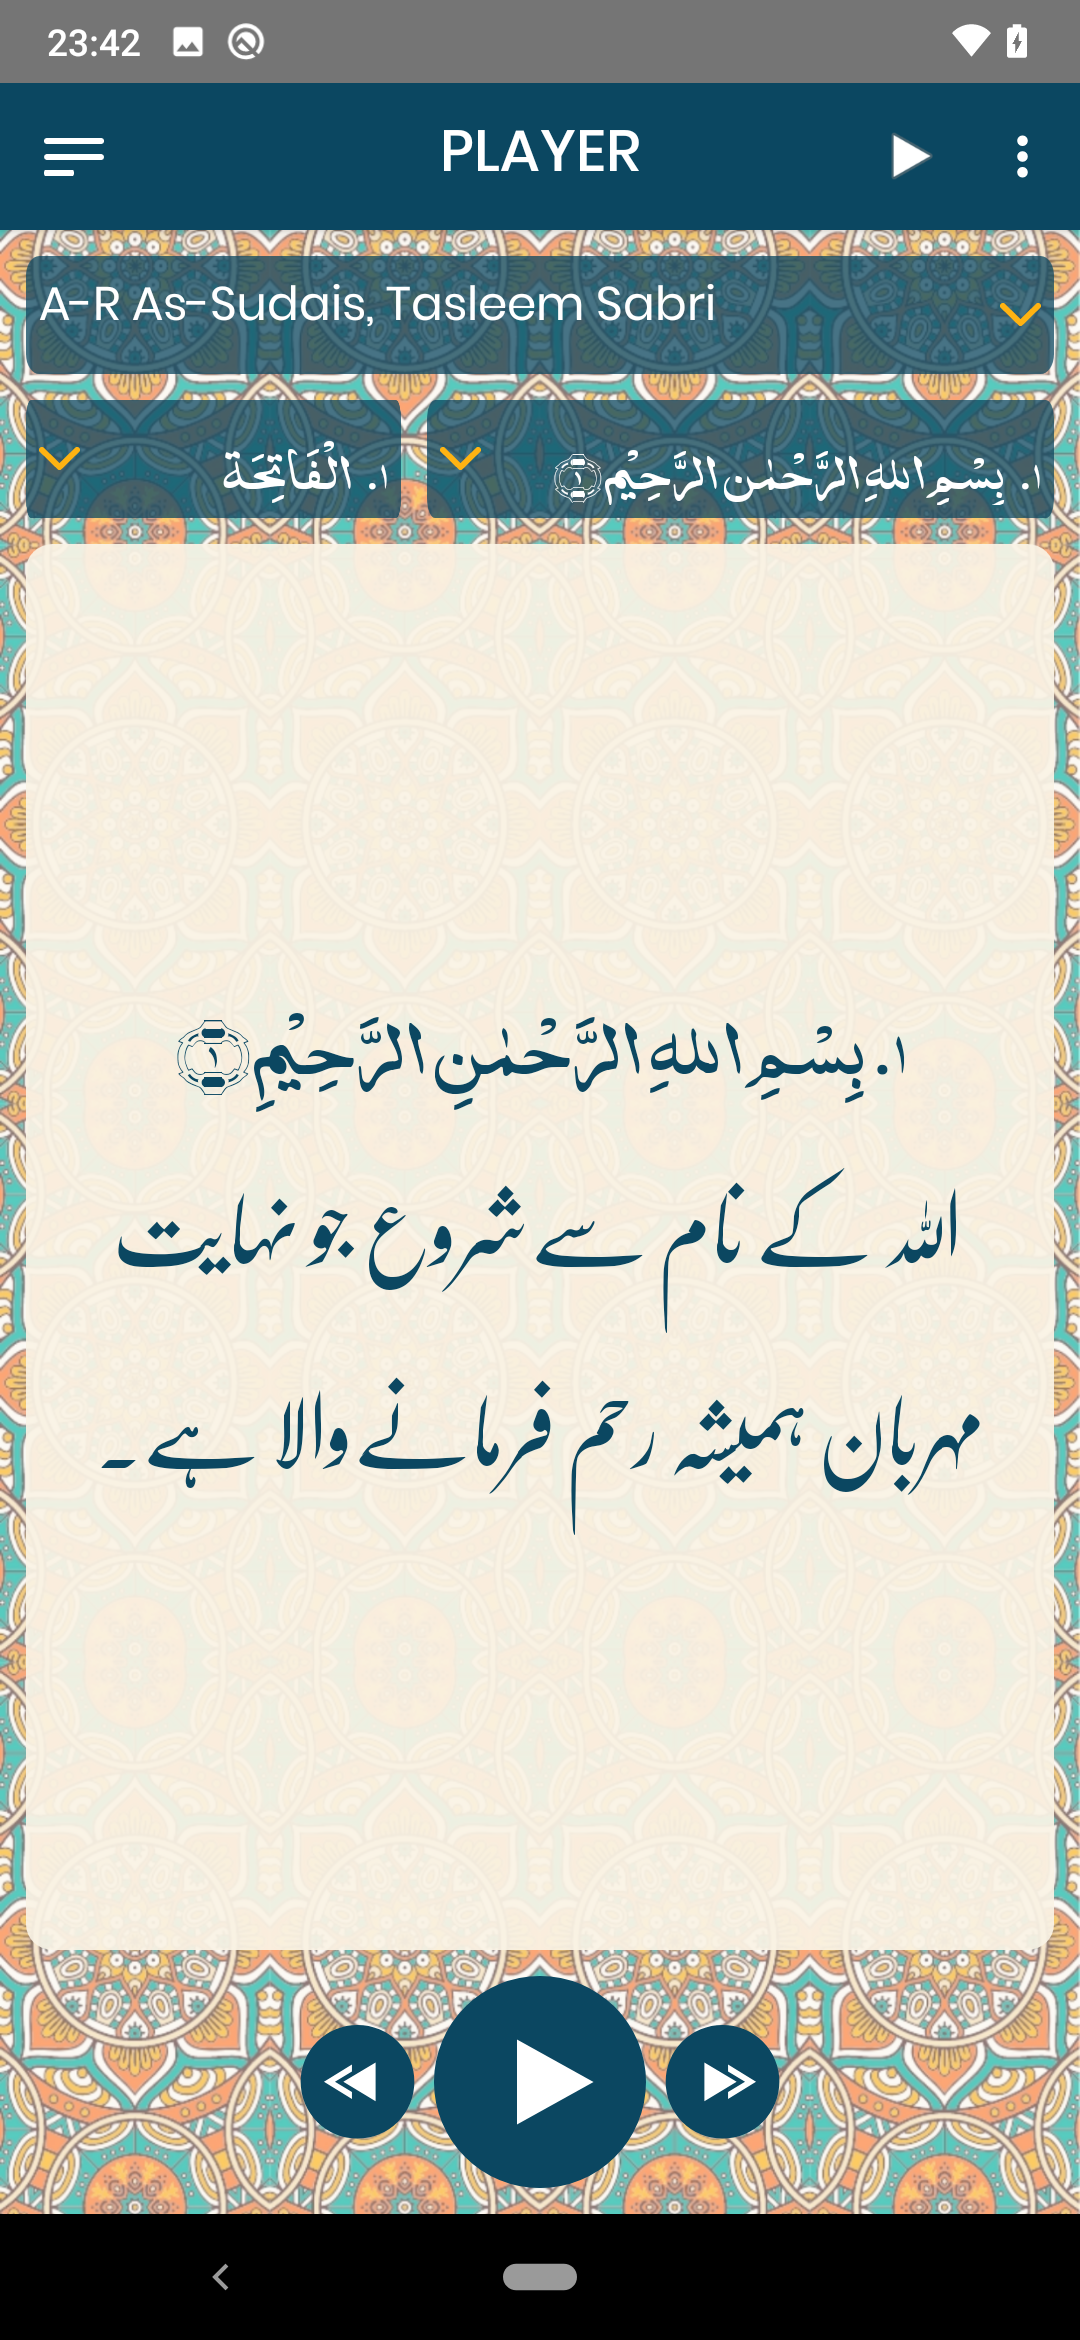 23:42
PLAYER
A-R As-Sudais, Tasleem Sabri
١. الْفَاتِحَة
١. بِسْمِ اللهِ الرَّحْمٰنِ الرَّحِيْمِ ۝١
١. بِسْمِ اللهِ الرَّحْمٰنِ الرَّحِيْمِ ۝١
اللہ کے نام سے شروع جو نہایت
مہربان ہمیشہ رحم فرمانے والا ہے۔